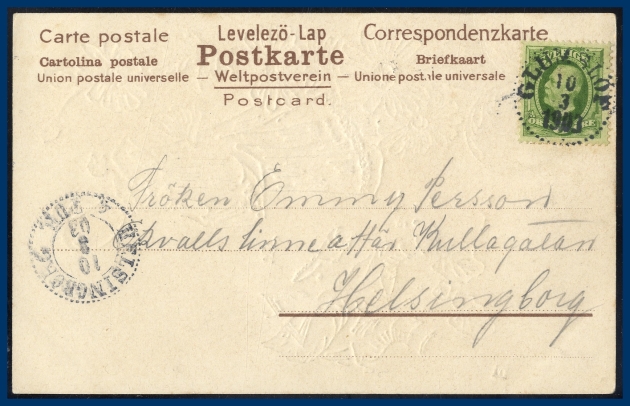 Carte postale Levelezö-Lap Correspondenzkarte
Cartolina postale Postkarte Briefkaart
Union postale universelle — Weltpostverein — Unione postale universale
Postcard.
GLUMSLÖF
10
3
Fröken Emmy Persson
Kullagatan
Helsingborg
HELSINGBORG
10
3
03